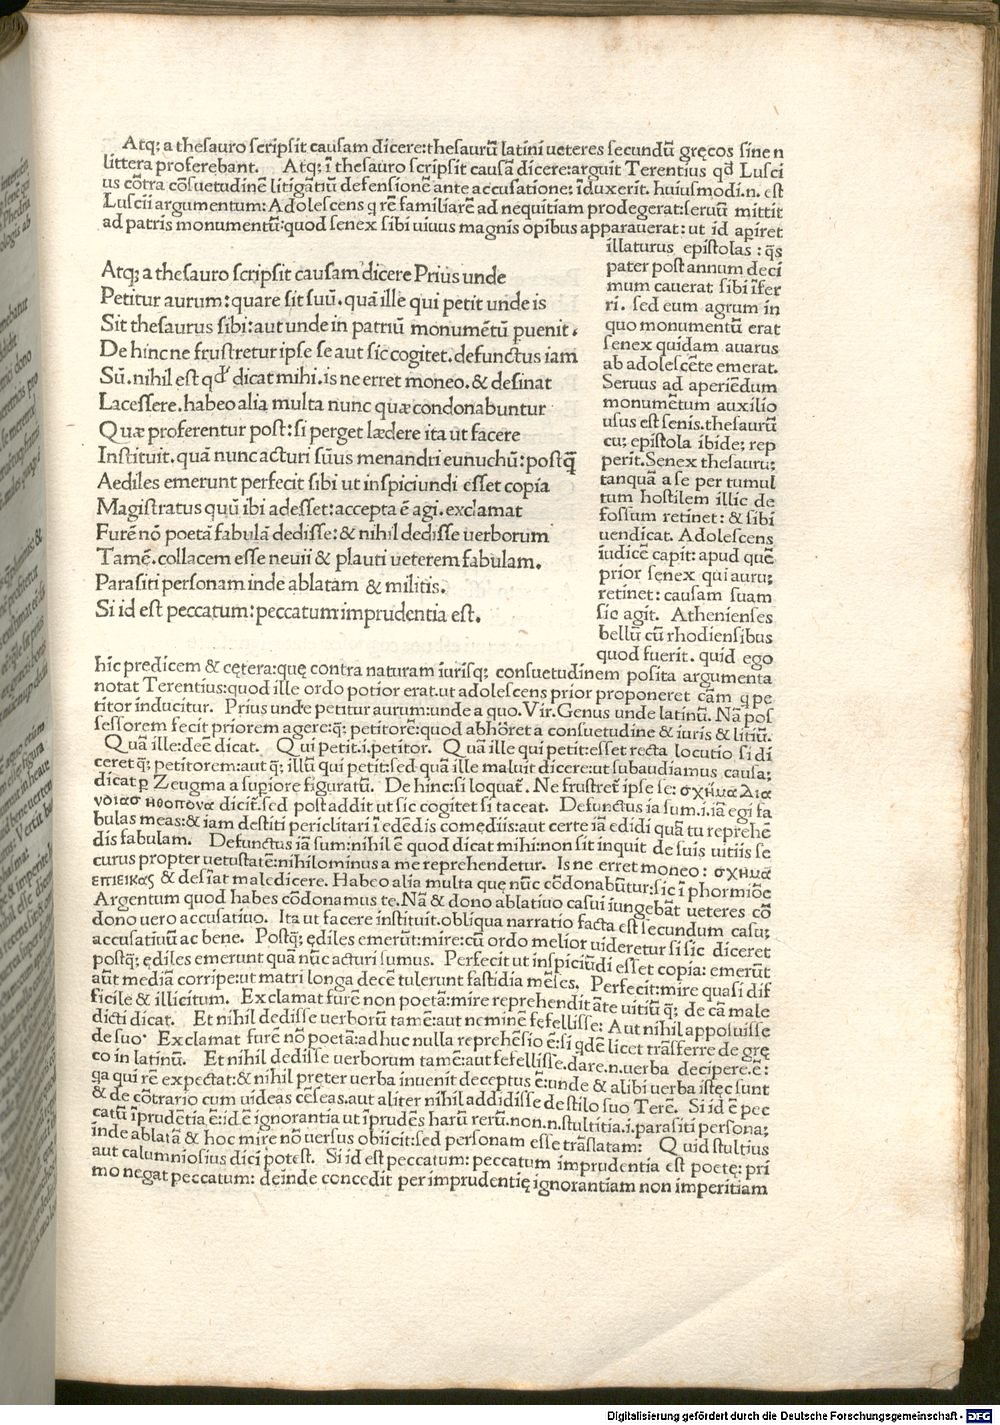 Atq; a thesauro scripsit causam dicere:thesaurū latini ueteres secundū gręcos sine n
littera proferebant. Atq; ī thesauro scripsit causā dicere:arguit Terentius qđ Lusci
us cōtra cōsuetudinē litigātiū defensionē ante accusatione; īduxerit. huiusmodi.n. est
Luscii argumentum: Adolescens q rē familiarē ad nequitiam prodegerat:seruū mittit
ad patris monumentū:quod senex sibi uiuus magnis opibus apparauerat: ut id apiret
illaturus epistolas : q̄s
pater post annum deci
mum cauerat sibi īfer
ri. sed eum agrum in
quo monumentū erat
senex quidam auarus
ab adolescēte emerat.
Seruus ad aperiēdum
monumētum auxilio
usus est senis.thesaurū
cu; epistola ibide; rep
perit.Senex thesauru;
tanquā a se per tumul
tum hostilem illic de
fossum retinet: & sibi
uendicat. Adolescens
iudicē capit: apud quē
prior senex qui auru;
retinet: causam suam
sic agit. Athenienses
bellū cū rhodiensibus
quod fuerit. quid ego
Atq; a thesauro scripsit causam dicere Prius unde
Petitur aurum: quare sit suū. quā ille qui petit unde is
Sit thesaurus sibi: aut unde in patriū monumētū puenit.
De hinc ne frustretur ipse se aut sic cogitet. defunctus iam
Sū. nihil est qđ dicat mihi. is ne erret moneo. & desinat
Lacessere. habeo alia multa nunc quæ condonabuntur
Quæ proferentur post: si perget lædere ita ut facere
Instituit. quā nunc acturi sūus menandri eunuchū: postq̄
Aediles emerunt perfecit sibi ut inspiciundi esset copia
Magistratus quū ibi adesset: accepta ē agi. exclamat
Furē nō poetā fabulā dedisse: & nihil dedisse uerborum
Tamē. collacem esse neuii & plauti ueterem fabulam.
Parasiti personam inde ablatam & militis.
Si id est peccatum: peccatum imprudentia est.
hic predicem & cętera:quę contra naturam iurisq; consuetudinem posita argumenta
notat Terentius:quod ille ordo potior erat.ut adolescens prior proponeret cām q pe
titor inducitur. Prius unde petitur aurum:unde a quo.Vir.Genus unde latinū. Nā pos
sessorem fecit priorem agere:q̄; petitorē:quod abhōret a consuetudine & iuris & litiū.
Quā ille:deē dicat. Qui petit.i.petitor. Quā ille qui petit:esset recta locutio si di
ceret q̄; petitorem:aut q̄; illū qui petit:sed quā ille maluit dicere:ut subaudiamus causa;
dicat p Zeugma a supiore figuratū. De hinc:si loquat̄. Ne frustret̄ ipse se: σχημα Δια
νοιασ ηθοπονα dicit̄.sed post addit ut sic cogitet si taceat. Defunctus ia sum.i.iā egi fa
bulas meas:& iam destiti periclitari ī edēdis comędiis:aut certe iā edidi quā tu reprehē
dis fabulam. Defunctus iā sum:nihil ē quod dicat mihi:non sit inquit de suis uitiis se
curus propter uetustatē:nihilominus a me reprehendetur. Is ne erret moneo: σχημα
επιεικας & desīat maledicere. Habeo alia multa quę nūc cōdonabūtur:sic ī phormiōe
Argentum quod habes cōdonamus te.Nā & dono ablatiuo casui iungebāt ueteres cō
dono uero accusatiuo. Ita ut facere instituit.obliqua narratio facta est secundum casu;
accusatiuū ac bene. Postq̄; ędiles emerūt:mire:cū ordo melior uideretur si sic diceret
postq̄; ędiles emerunt quā nūc acturi sumus. Perfecit ut inspiciūdi esset copia: emerūt
aūt mediā corripe:ut matri longa decē tulerunt fastidia mēses. Perfecit:mire quasi dif
ficile & illicitum. Exclamat furē non poetā:mire reprehendit āte uitiū q̄; de cā male
dicti dicat. Et nihil dedisse uerborū tamē:aut neminē fefellisse: Aut nihil apposuisse
de suo. Exclamat furē nō poetā:adhuc nulla reprehēsio ē:si qdē licet trāsferre de grę
co in latinū. Et nihil dedisse uerborum tamē:aut fefellisse.dare.n.uerba decipere.ē:
ga qui rē expectat:& nihil pręter uerba inuenit deceptus ē:unde & alibi uerba istęc sunt
& de cōtrario cum uideas cēseas.aut aliter nihil addidisse de stilo suo Terē. Si id ē pec
catū īprudētia ē:idē ignorantia ut īprudēs harū rerū.non.n.stultitia.i.parasiti persona;
inde ablatā & hoc mire nō uersus obiicit:sed personam esse trāslatam: Quid stultius
aut calumniosius dici potest. Si id est peccatum: peccatum imprudentia est poetę: pri
mo negat peccatum: deinde concedit per imprudentię ignorantiam non imperitiam
Digitalisierung gefördert durch die Deutsche Forschungsgemeinschaft - DFG